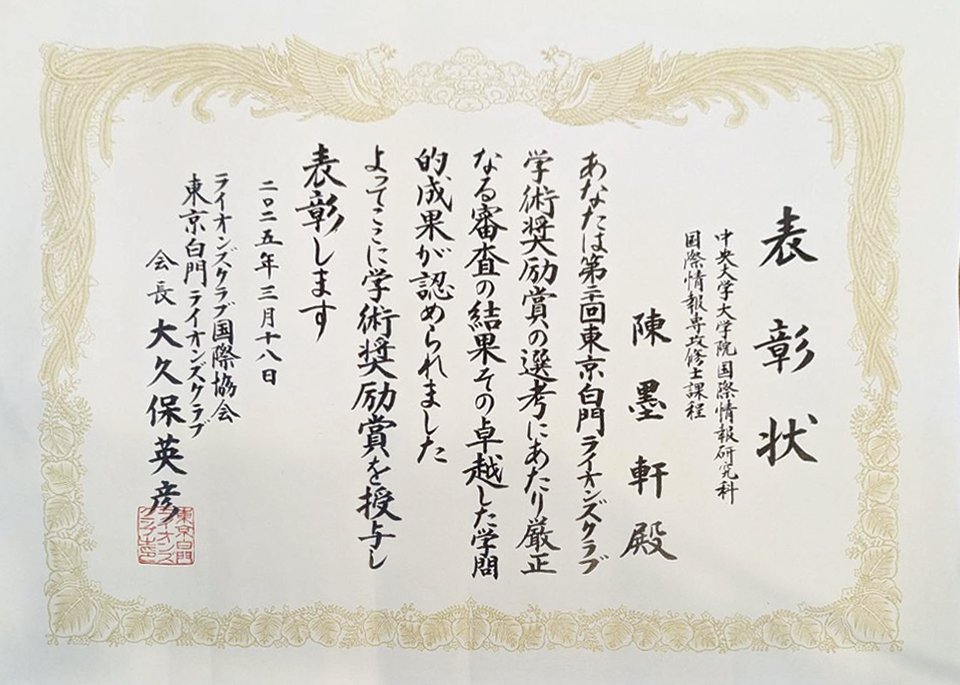 表彰状
中央大学大学院国際情報研究科
国際情報専攻修士課程
陳墨軒殿
あなたは第二回東京白門ライオンズクラブ
学術奨励賞の選考にあたり厳正
なる審査の結果その卓越した学問
的成果が認められました
よってここに学術奨励賞を授与し
表彰します
二〇二五年三月十八日
ライオンズクラブ国際協会
東京白門ライオンズクラブ
会長 大久保英彦
東京白門
ライオンズ
クラブ之印